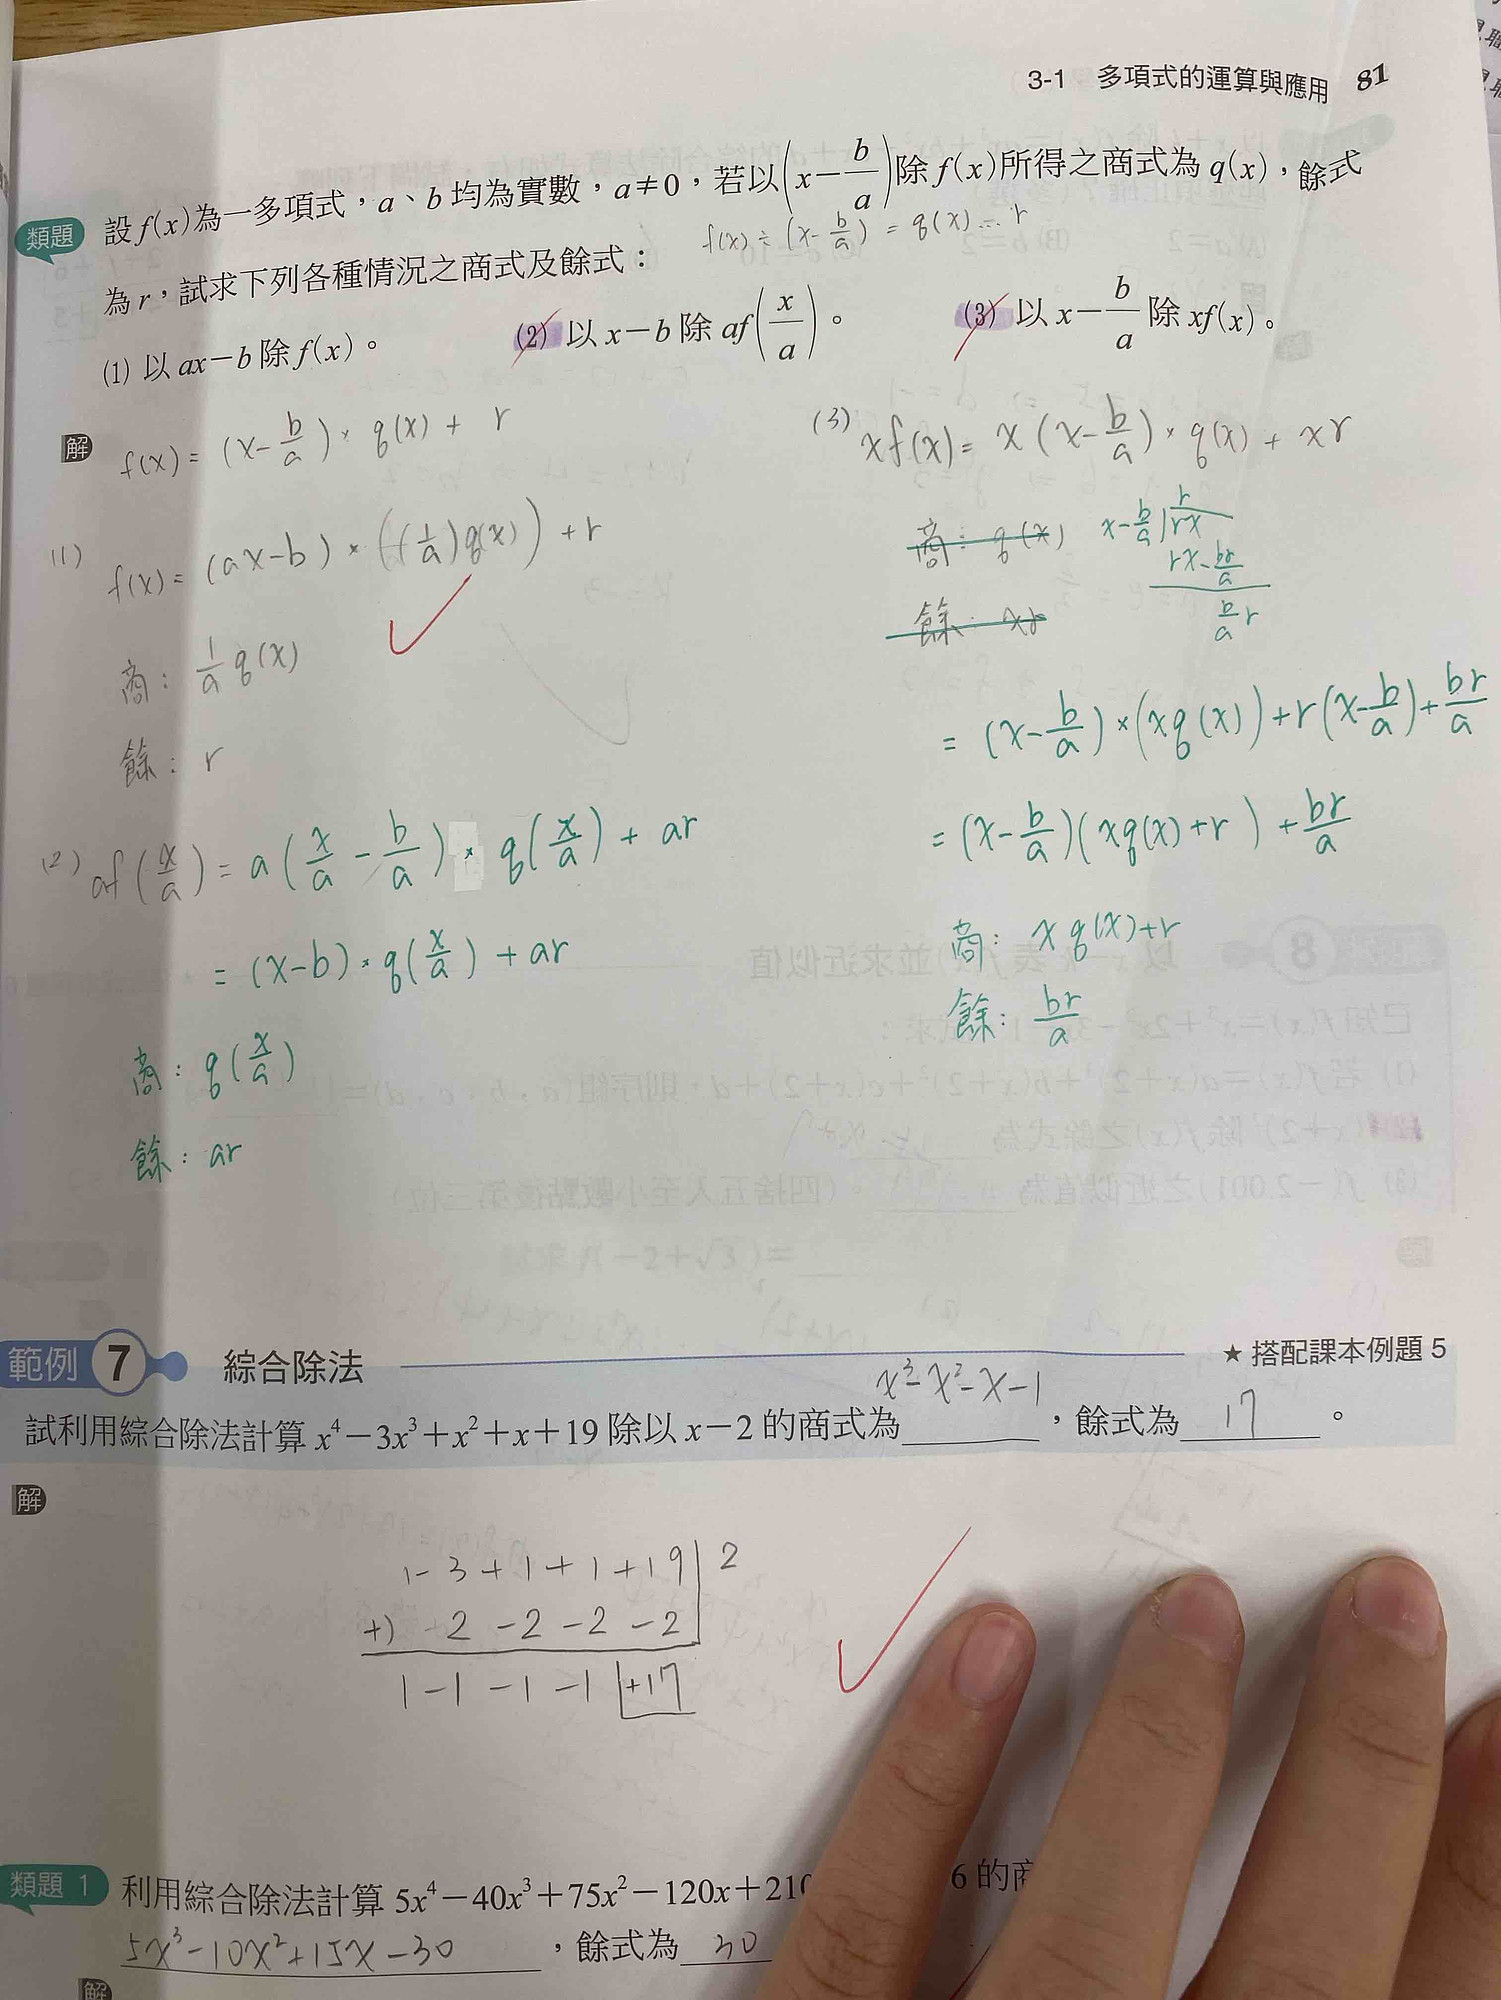 3-1 多項式的運算與應用 81
類題 設f(x)為一多項式，a、b均為實數，a≠0，若以(x－b/a)除f(x)所得之商式為q(x)，餘式
f(x) ÷ (x-b/a) = q(x)... r
為r，試求下列各種情況之商式及餘式：
(1) 以ax－b除f(x)。 (2) 以x－b除af(x/a)。 (3) 以x－b/a除xf(x)。
解 f(x) = (x-b/a) × q(x) + r
(1) f(x) = (ax-b) × ((1/a)q(x)) + r
商: 1/a q(x)
餘: r
(2) af(x/a) = a(x/a - b/a) × q(x/a) + ar
= (x-b) × q(x/a) + ar
商: q(x/a)
餘: ar
(3) xf(x) = x(x-b/a) × q(x) + xr
商: q(x)
餘: xr
r
x-b/a xr
rx-br/a
b/a r
= (x-b/a) × (xq(x)) + r(x-b/a) + br/a
= (x-b/a)(xq(x)+r) + br/a
商: xq(x)+r
餘: br/a
範例 7 綜合除法 ★搭配課本例題5
x³-x²-x-1
試利用綜合除法計算x⁴－3x³＋x²＋x＋19除以x－2的商式為，餘式為 17 。
解
1-3+1+1+19 2
+) 2-2-2-2
1-1-1-1 +17
類題 1 利用綜合除法計算5x⁴－40x³＋75x²－120x＋210 6的商
5x³-10x²+15x-30 ，餘式為 30
解